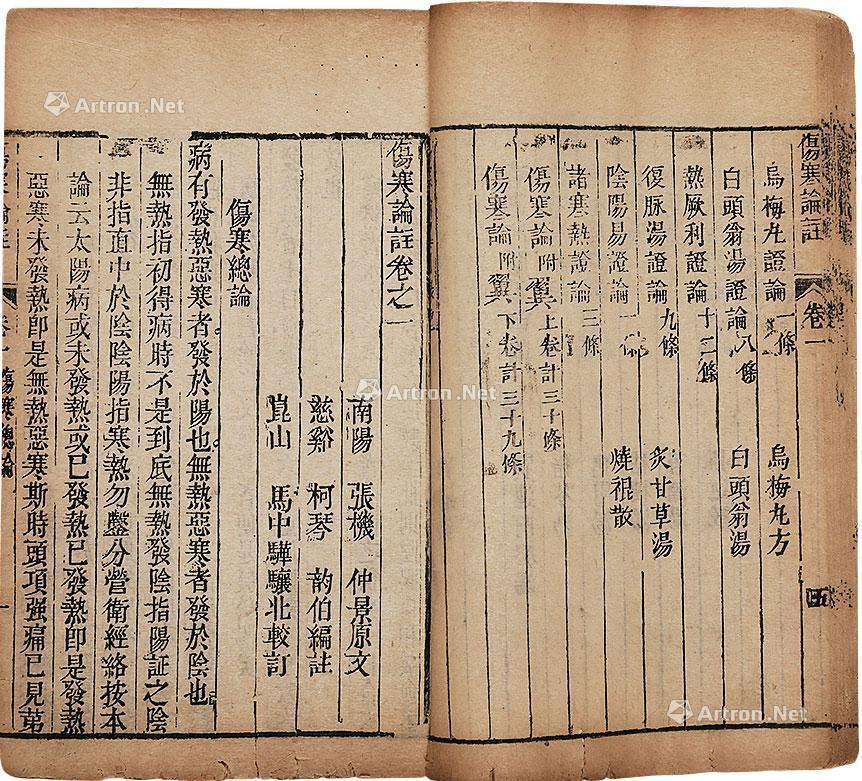 傷寒論註
卷一
五
烏梅丸證論一條 烏梅丸方
白頭翁湯證論八條 白頭翁湯
熱厥利證論十二條
復脉湯證論九條 炙甘草湯
陰陽易證論一條 燒裩散
諸寒熱證論三條
傷寒論附翼上卷計三十條
傷寒論附翼下卷計三十九條
傷寒論註卷之一
南陽 張機 仲景原文
慈谿 柯琴 韵伯編註
崑山 馬中驊驤北較訂
傷寒總論
病有發熱惡寒者發於陽也無熱惡寒者發於陰也
無熱指初得病時不是到底無熱發陰指陽証之陰
非指直中於陰陰陽指寒熱勿鑿分營衛經絡按本
論云太陽病或未發熱或已發熱已發熱即是發熱
惡寒未發熱即是無熱惡寒斯時頭項强痛已見第
卷一 傷寒總論
一
Artron.Net
Artron.Net
Artron.Net
Artron.Net